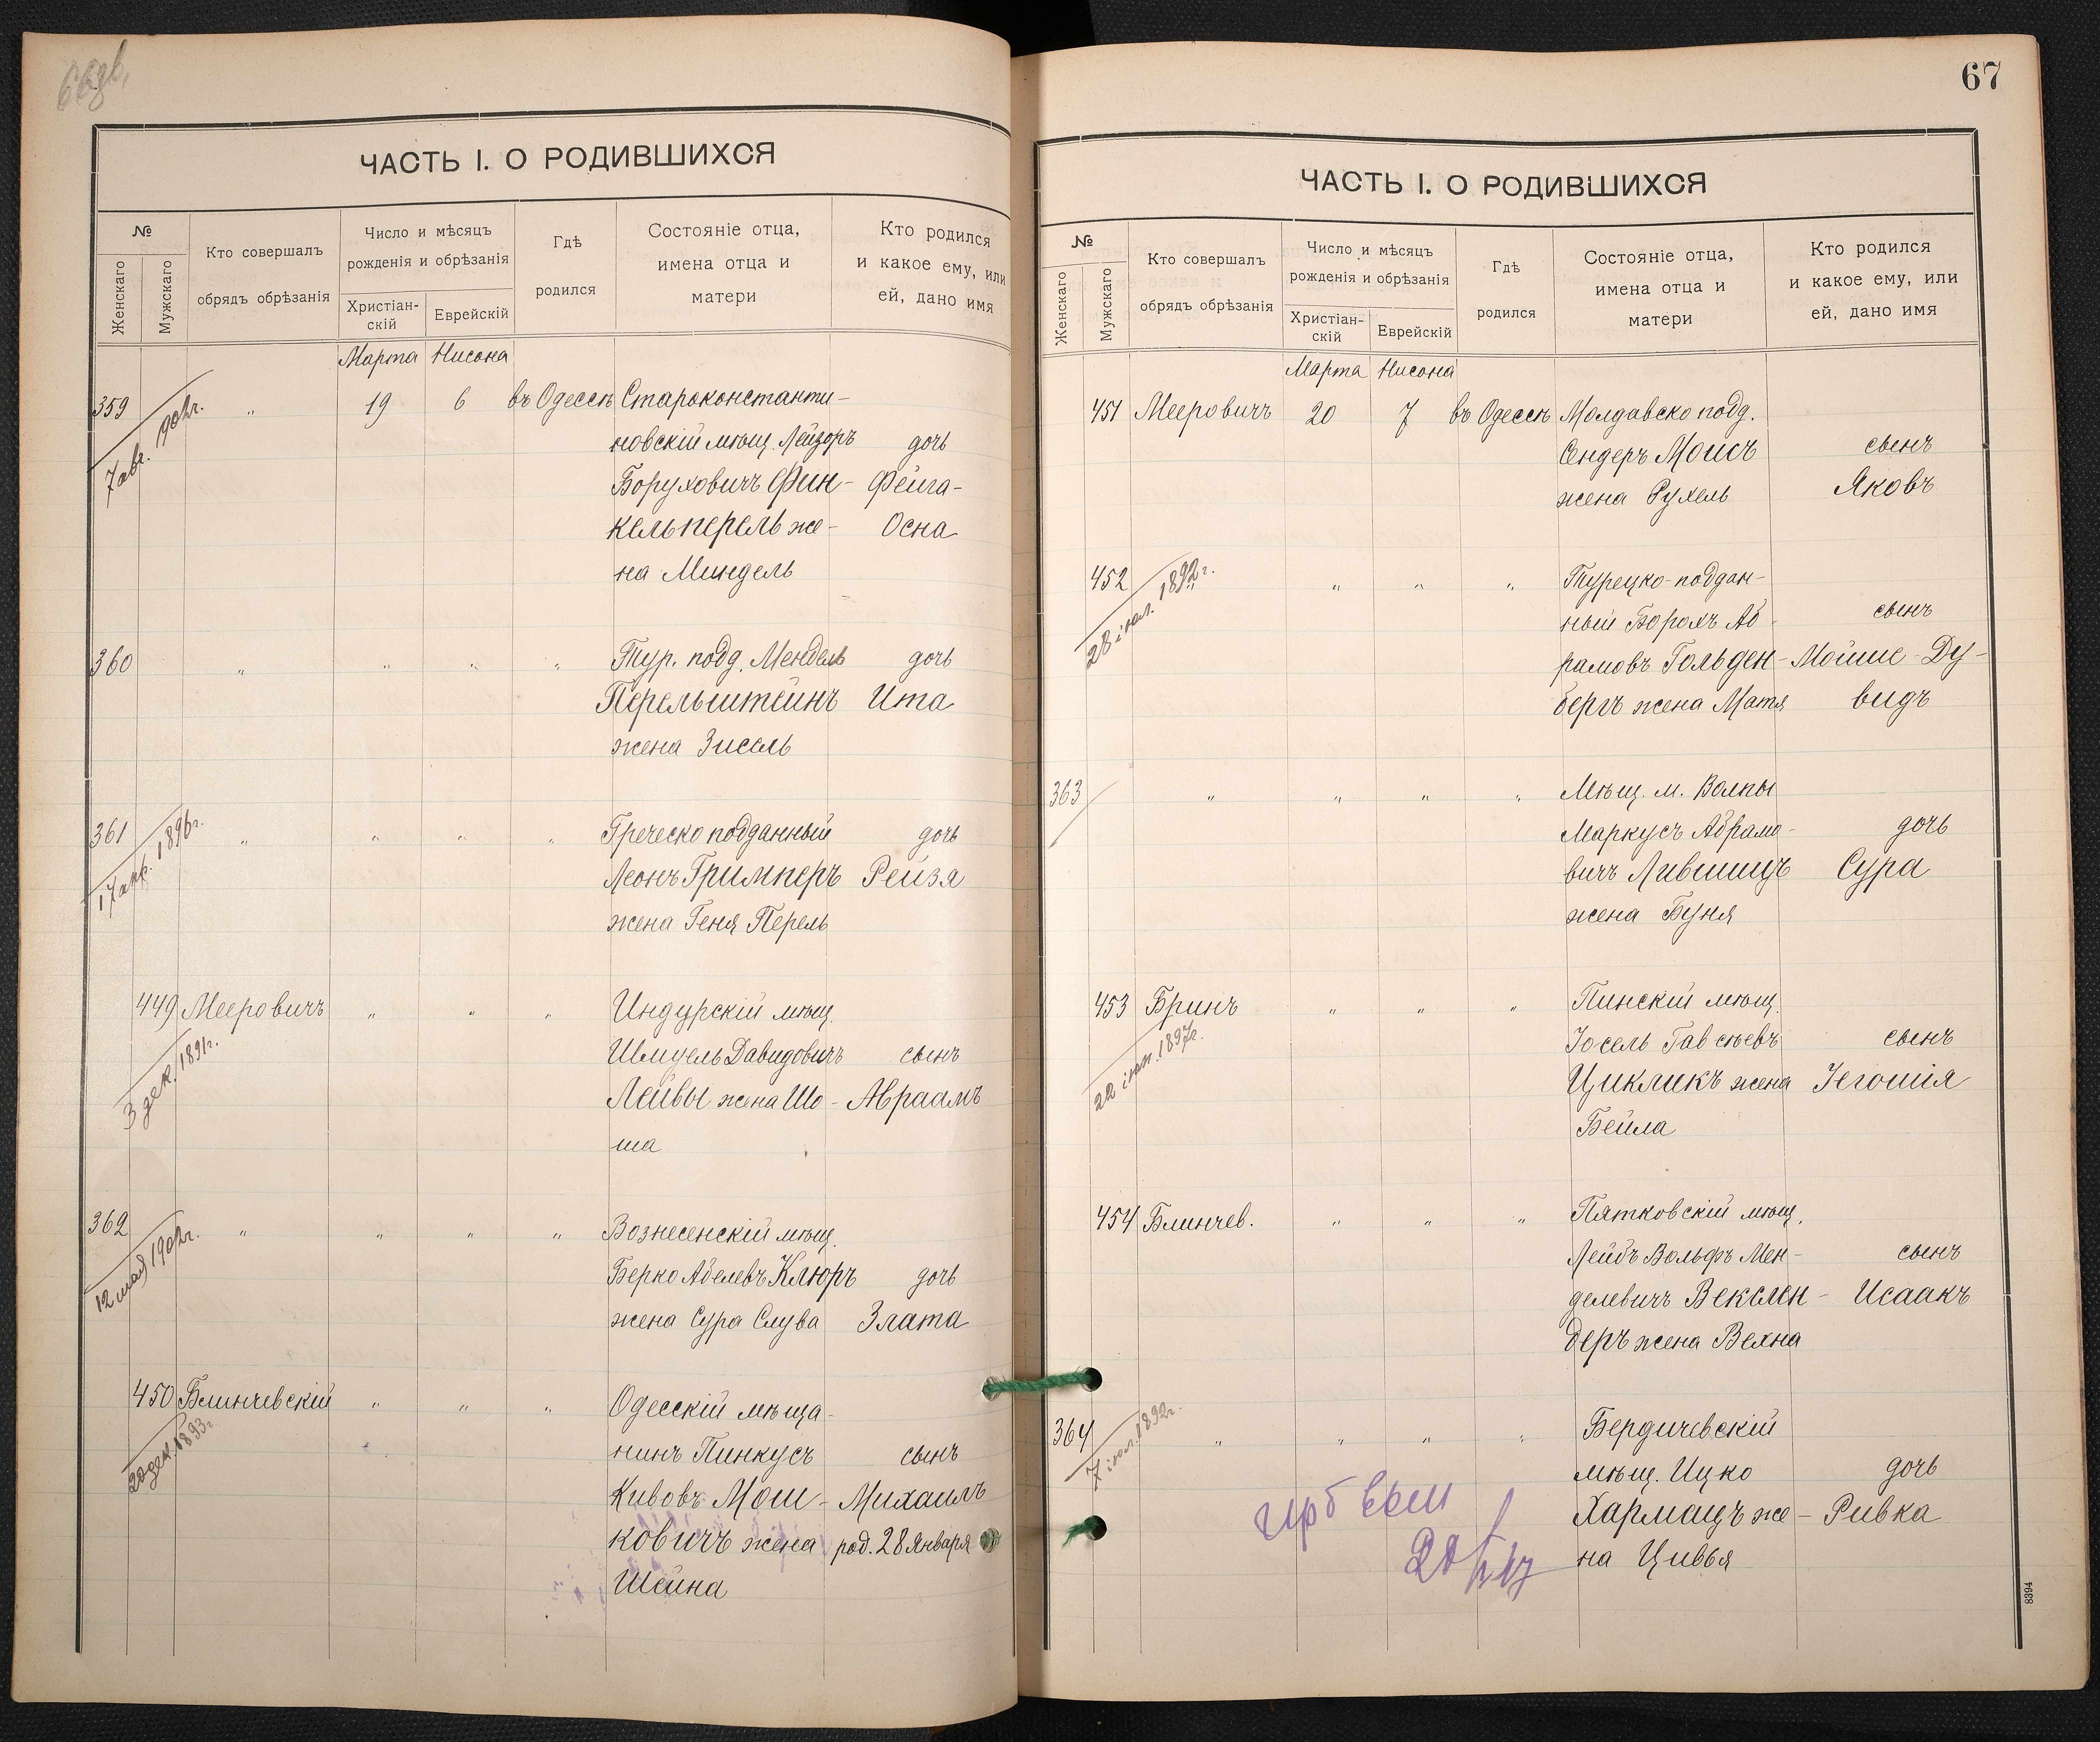 ЧАСТЬ I. О РОДИВШИХСЯ
№
Женскаго
Мужскаго
Кто совершалъ
обрядъ обрѣзанія
Число и мѣсяцъ
рожденія и обрѣзанія
Христіан-
скій
Еврейскій
Гдѣ
родился
Состояніе отца,
имена отца и
матери
Кто родился
и какое ему, или
ей, дано имя
Марта Нисона
359 " 19 6 въ Одессѣ Староконстанти-
7 авг. 1902г.
новскій мѣщ. Лейзоръ дочь
Боруховичъ Фин- Фейга-
кельперель же- Осна
на Миндель
360 " " " " Тур. подд. Мендель дочь
Перельштейнъ Ита
жена Зисель
361 " " " " Греческо подданный дочь
17 апр. 1896г.
Леонъ Гримперъ Рейзя
жена Геня Перель
449 Мееровичъ " " " Индурскій мѣщ.
3 дек. 1891г.
Шмуель Давидовичъ сынъ
Лейвы жена Шо- Авраамъ
ша
362 " " " " Вознесенскій мѣщ.
12 мая 1902г.
Берко Абелевъ Клюръ дочь
жена Сура Слува Злата
450 Блинчевскій " " " Одесскій мѣща-
20 дек. 1893г.
нинъ Пинкусъ сынъ
Кивовъ Мош- Михаилъ
ковичъ жена род. 28 Января
Шейна
67
ЧАСТЬ I. О РОДИВШИХСЯ
№
Женскаго
Мужскаго
Кто совершалъ
обрядъ обрѣзанія
Число и мѣсяцъ
рожденія и обрѣзанія
Христіан-
скій
Еврейскій
Гдѣ
родился
Состояніе отца,
имена отца и
матери
Кто родился
и какое ему, или
ей, дано имя
Марта Нисона
451 Мееровичъ 20 7 въ Одессѣ Молдавско подд.
Сендеръ Моисъ сынъ
жена Рухель Яковъ
452 " " " Турецко-поддан-
28 іюл. 1892г.
ный Борохъ Аб- сынъ
рамовъ Гольден- Мойше-Ду-
бергъ жена Матя видъ
363 " " " " Мѣщ. м. Волпы
Маркусъ Абрамо- дочь
вичъ Лившицъ Сура
жена Буня
453 Бринъ " " " Пинскій мѣщ.
22 іюн. 1897г.
Іосель Гавсѣевъ сынъ
Цикликъ жена Іегошія
Бейла
454 Блинчев. " " " Пятковскій мѣщ.
Лейбъ Вольфъ Мен- сынъ
делевичъ Векслен- Исаакъ
деръ жена Вехна
364 " " " " Бердичевскій
7 іюл. 1892г.
мѣщ. Ицко дочь
Хармацъ же- Ривка
на Цивья
8394